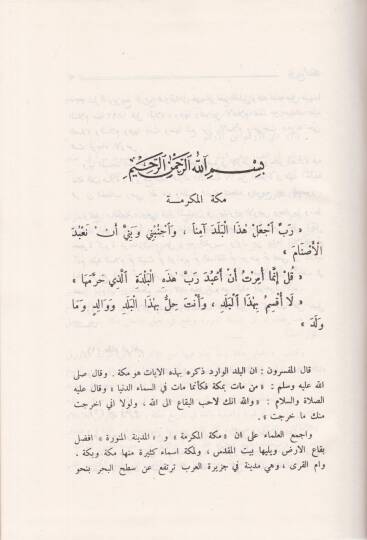 بسم الله الرحمن الرحيم
مكة المكرمة
« رَبِّ اجْعَلْ هٰذَا الْبَلَدَ آمِناً ، وَاجْنُبْنِي وَبَنِيَّ أَنْ نَعْبُدَ
الْأَصْنَامَ »
« قُلْ إِنَّمَا أُمِرْتُ أَنْ أَعْبُدَ رَبَّ هٰذِهِ الْبَلْدَةِ الَّذِي حَرَّمَهَا »
« لَا أُقْسِمُ بِهٰذَا الْبَلَدِ ، وَأَنْتَ حِلٌّ بِهٰذَا الْبَلَدِ وَوَالِدٍ وَمَا
وَلَدَ »
قال المفسرون : ان البلد الوارد ذكره بهذه الايات هو مكة . وقال صلى
الله عليه وسلم : « من مات بمكة فكأنما مات في السماء الدنيا » وقال عليه
الصلاة والسلام : « والله انك لاحب البقاع الى الله ، ولولا اني اخرجت
منك ما خرجت » .
واجمع العلماء على ان « مكة المكرمة » و « المدينة المنورة » افضل
بقاع الارض ويليها بيت المقدس ، ولمكة اسماء كثيرة منها مكة وبكة .
وام القرى ، وهي مدينة في جزيرة العرب ترتفع عن سطح البحر بنحو